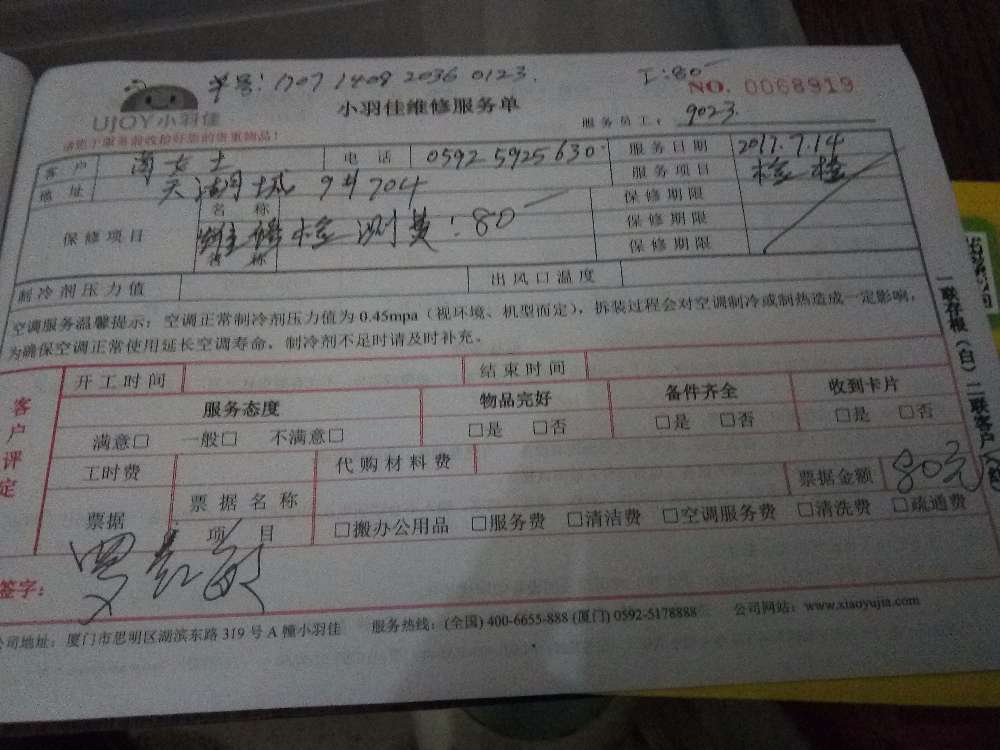 单号: 1707 1409 2036 0123.
工:80
NO. 0068919
UJOY小羽佳
小羽佳维修服务单
服务员工: 9023
请您于服务前收拾好您的贵重物品!
客户 女士 电话 0592 5925630 服务日期 2017.7.14
地址 天湖城 704 服务项目 检
保修项目 名称 保修期限
维修检测费:80 保修期限
名称 保修期限
制冷剂压力值 出风口温度
空调服务温馨提示: 空调正常制冷剂压力值为 0.45mpa(视环境、机型而定),拆装过程会对空调制冷或制热造成一定影响,
为确保空调正常使用延长空调寿命,制冷剂不足时请及时补充。
客户评定
开工时间 结束时间
服务态度 物品完好 备件齐全 收到卡片
满意□ 一般□ 不满意□ □是 □否 □是 □否 □是 □否
工时费 代购材料费
票据 票据名称 票据金额 80元
项目 □搬办公用品 □服务费 □清洁费 □空调服务费 □清洗费 □疏通费
签字:
公司地址: 厦门市思明区湖滨东路 319 号 A 幢小羽佳 服务热线: (全国) 400-6655-888 (厦门) 0592-5178888 公司网站: www.xiaoyujia.com
一联存根(白) 二联客户